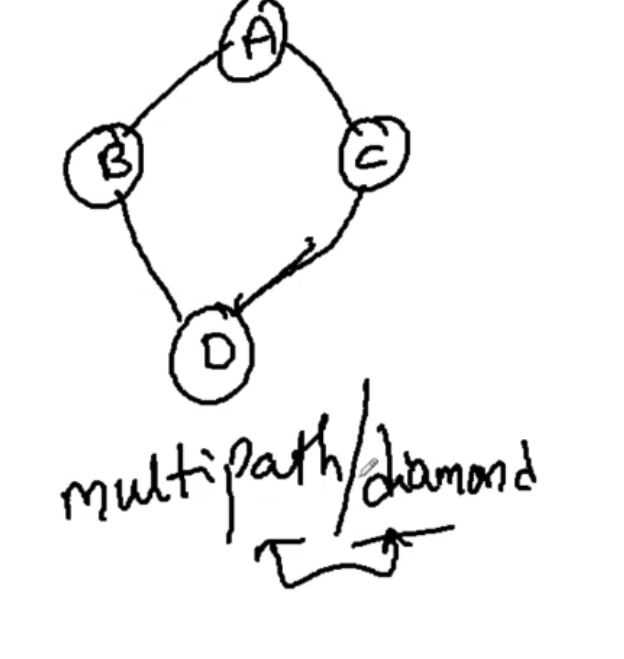 A
B
C
D
multipath/diamond